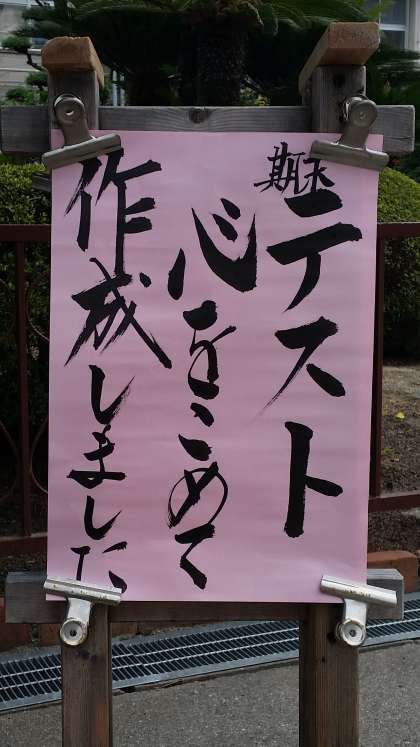 期末テスト
心をこめて
作成しました